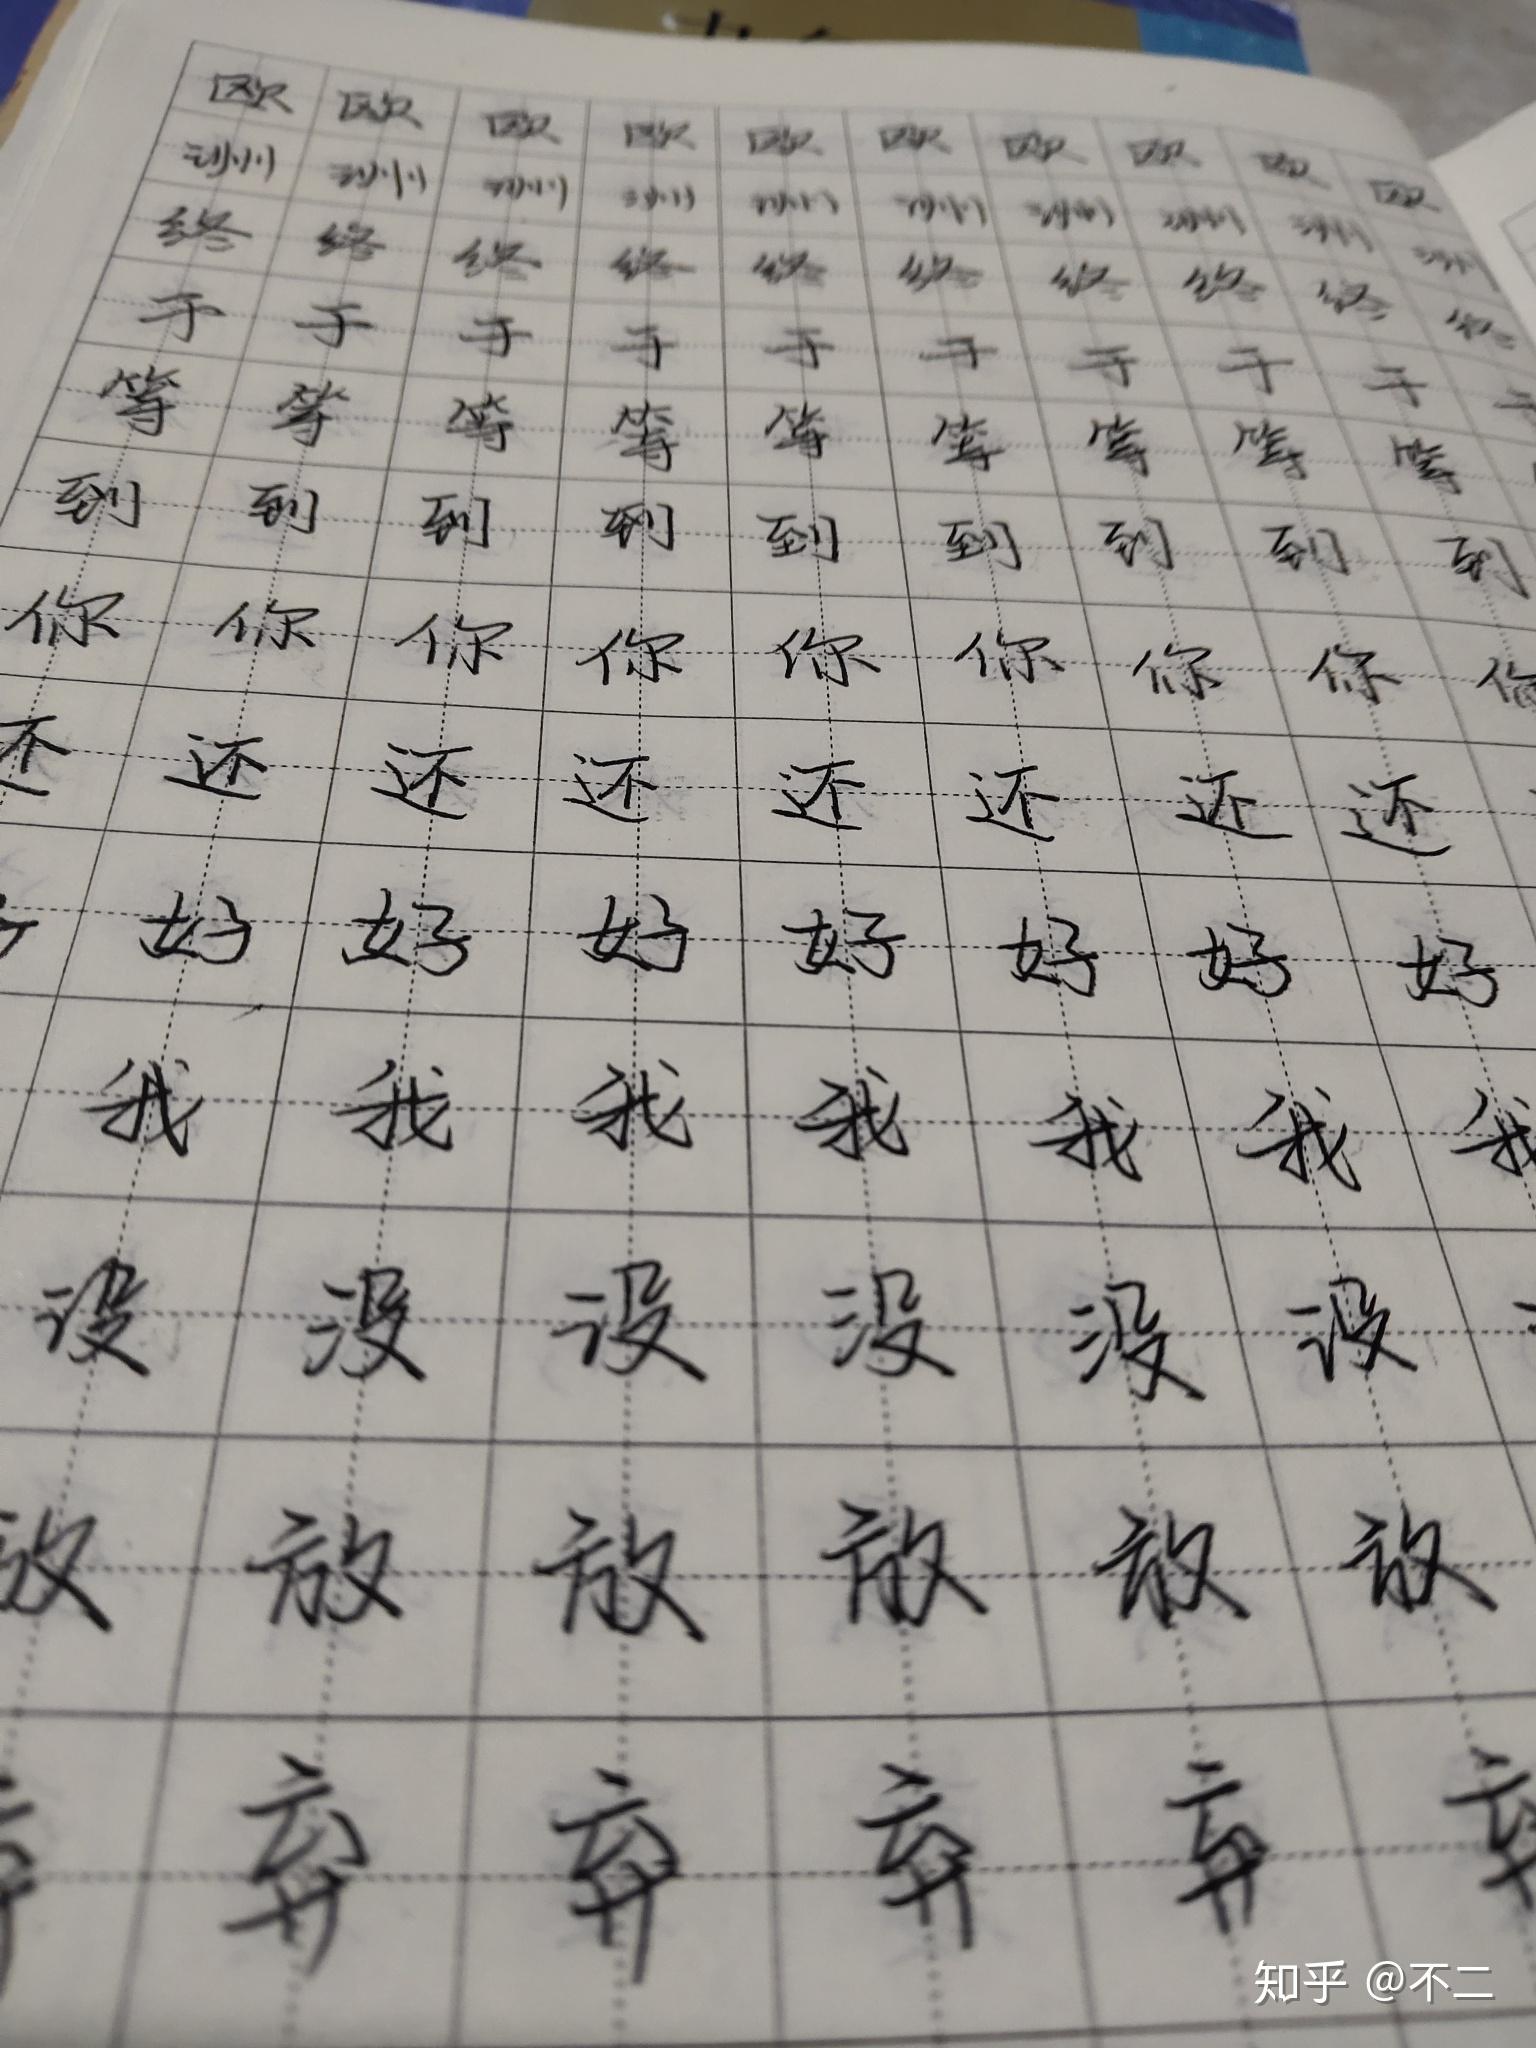 欧欧欧欧欧欧欧欧欧欧
洲洲洲洲洲洲洲洲洲洲
终终终终终终终终终终
于于于于于于于于于于
等等等等等等等等等
到到到到到到到到到
你你你你你你你你你
还还还还还还还还
好好好好好好好
我我我我我我我
没没没没没没
放放放放放放
弃弃弃弃弃
知乎 @不二